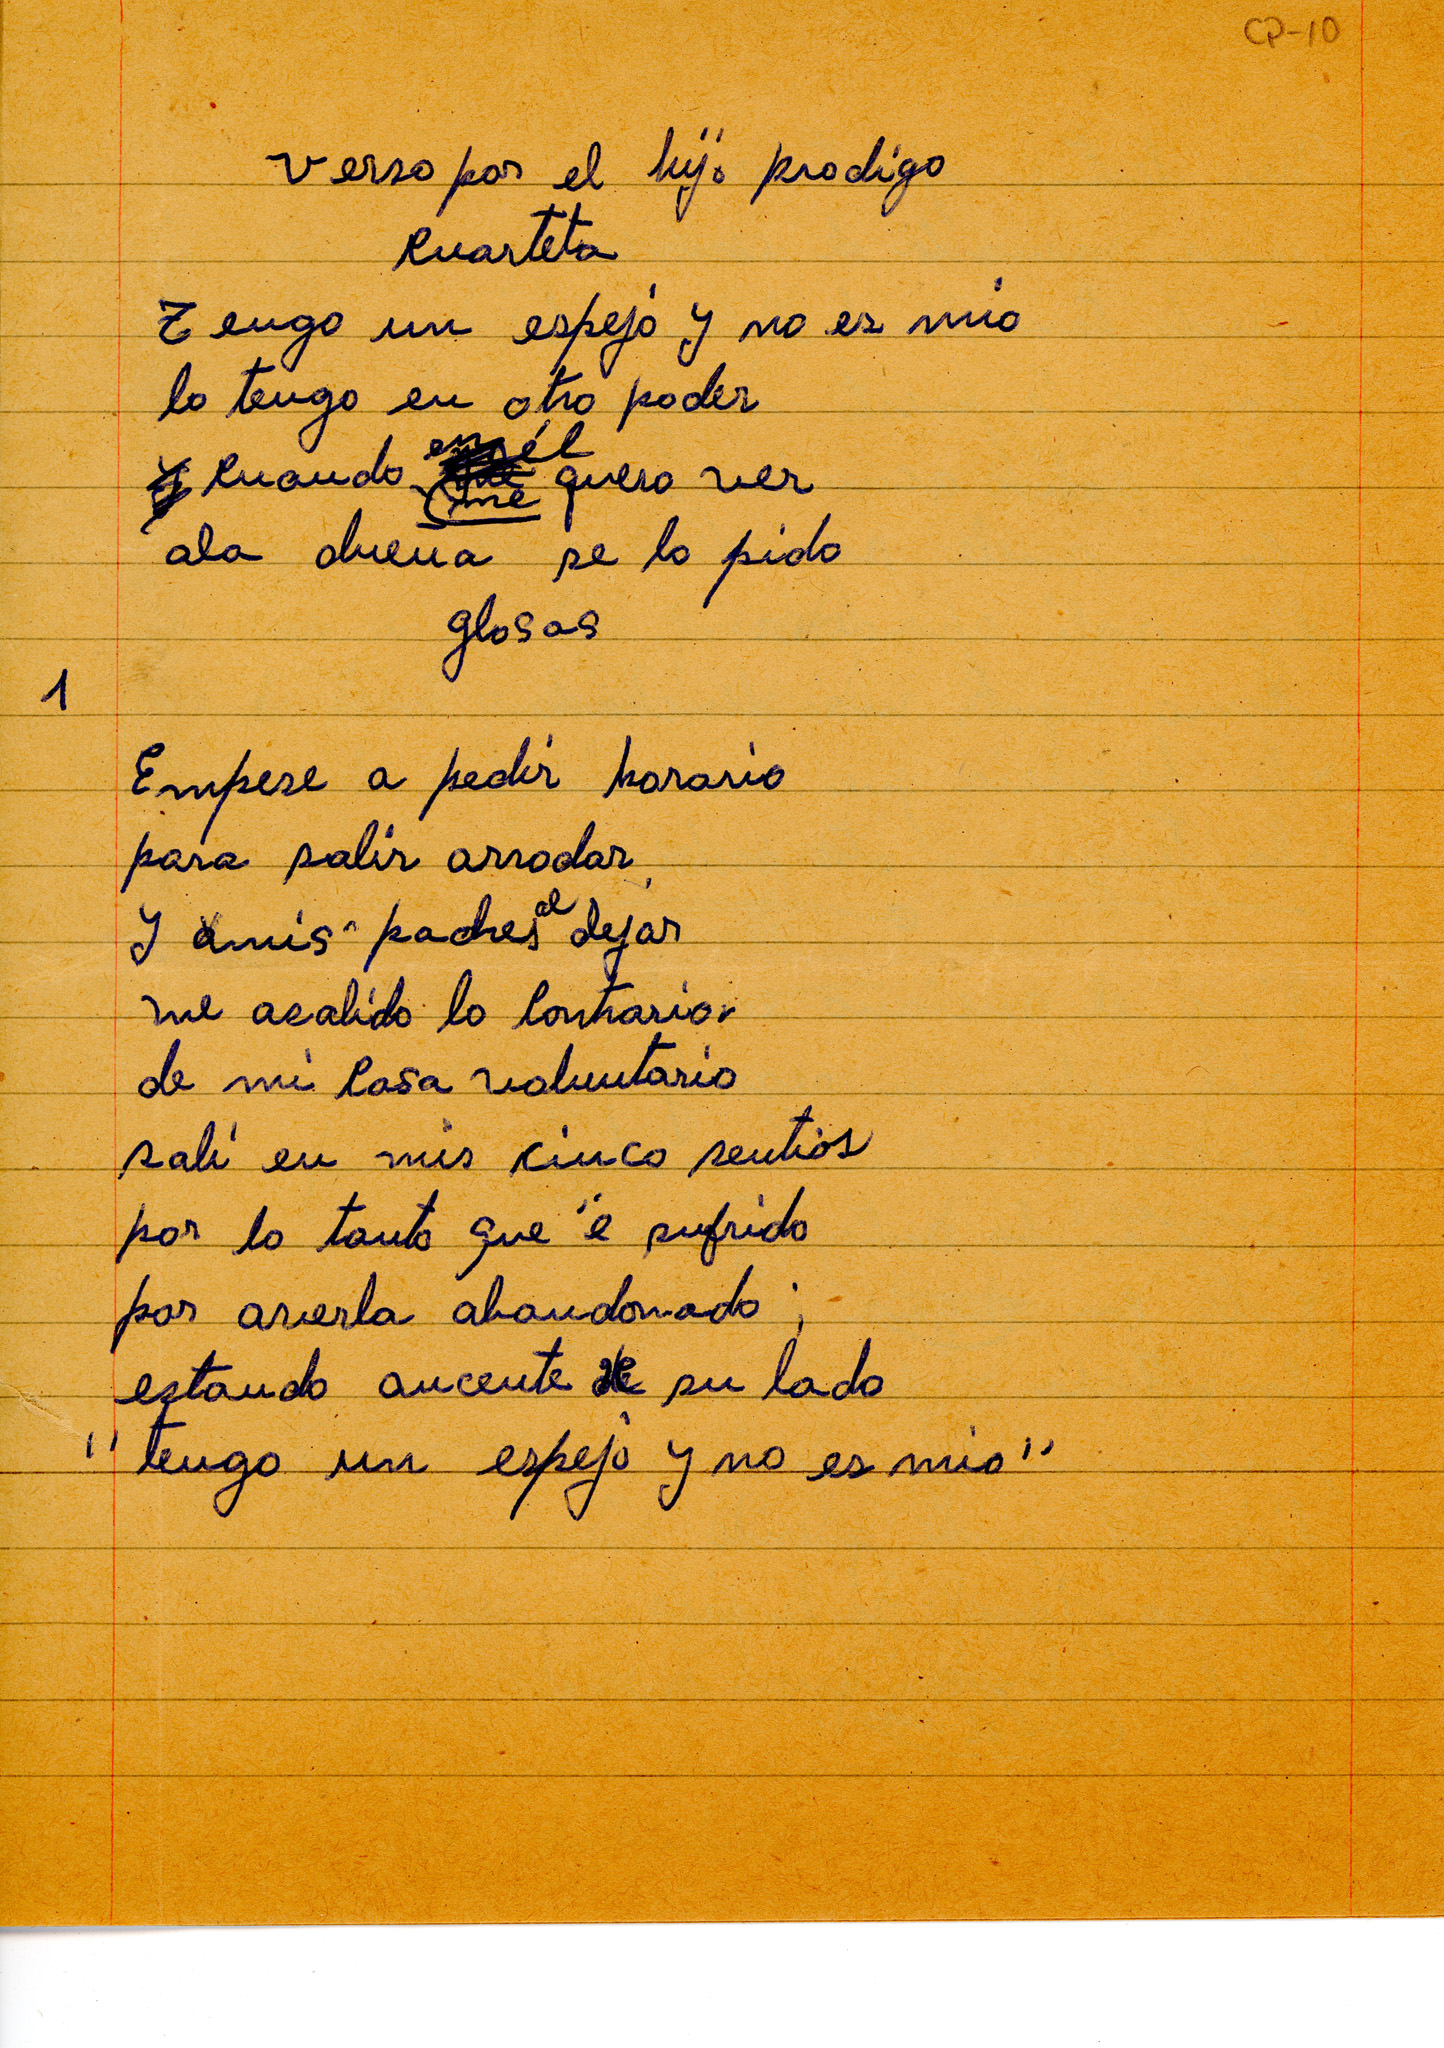 CP-10
verso por el hijo prodigo
Cuarteta
Tengo un espejo y no es mio
lo tengo en otro poder
Cuando en él me quero ver
ala duena se lo pido
glosas
1
Empese a pedir horario
para salir arrodar
y amis padres al dejar
me asalido lo contrario
de mi casa voluntario
sali en mis cinco sentios
por lo tanto que e sufrido
por averla abandonado;
estando aucente de su lado
"tengo un espejo y no es mio"